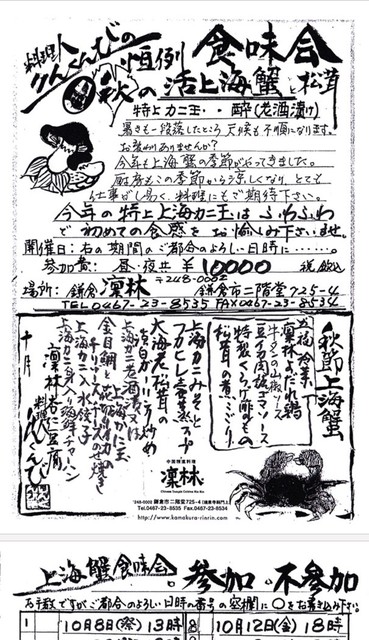 料理人
けんけんじの
恒例 食味会
秋の活上海蟹と松茸
特上カニ玉・・酔(老酒漬け)
暑さも一段落したところ 天候も不順になります。
お変わりありませんか?
今年も上海蟹の季節がやってきました。
厨房もこの季節から涼しくなり とても
仕事がし易く、料理にもご期待下さい。
今年の特上上海カニ玉はふわふわ
で初めての食感をお愉しみ下さいませ。
開催日:右の期間のご都合のよろしい日時に・・・・・・。
参加費: 昼・夜共 ¥10000 税・サ込
〒248-0002
場所: 鎌倉 凛林 鎌倉市二階堂725-4
TEL0467-23-8535 FAX0467-23-8534
秋節上海蟹
五福冷菜
凛林よだれ鶏
特製くらげ
松茸の煮こごり
上海カニみそと
フカヒレ三昧スープ
大海老と松茸の
上海カニ老酒漬又は
上海カニ玉
金目鯛と
上海カニ入水餃子
上海カニ身入り海鮮チャーハン
凛林杏仁豆腐
十月
料理人
中国精進料理
凛林
Chinese Temple Cuisine Rin Rin
〒248-0002 鎌倉市二階堂725-4(鎌倉宮前門)
Tel.0467-23-8535 Fax.0467-23-8534
http://www.kamakura-rinrin.com
上海蟹食味会 ・参加・不参加
お手数ですがご都合のよろしい日時の番号の空欄に○をお書き込み下さい。
1 10月8日(祭) 13時 8 10月12日(金) 18時